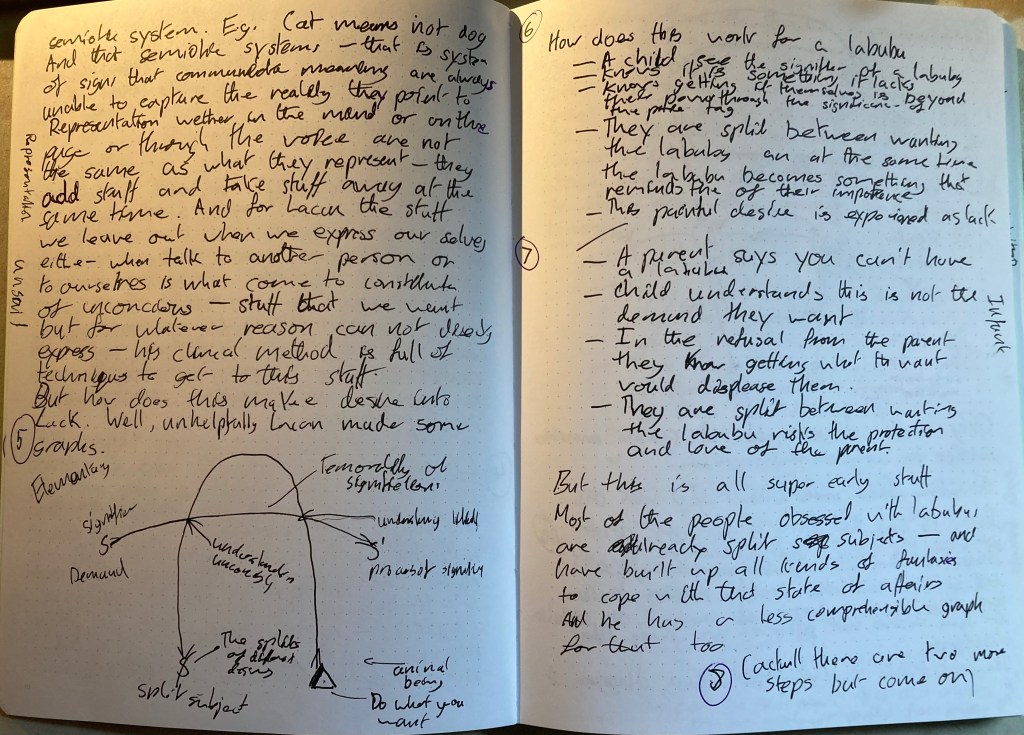 semiotic system. E.g. Cat means not dog
And that semiotic systems – that is system
of signs that communicate meaning are always
unable to capture the reality they point to
Representation wether in the mind or on the
page or through the voice are not
the same as what they represent – they
add stuff and take stuff away at the
same time. And for Lacan the stuff
we leave out when we express our selves
either when talk to another person or
to ourselves is what come to constitute
of unconcious – stuff that we want
but for whatever reason can not
express – his clinical method is full of
techniques to get to this stuff
But how does this make desire into
Lack. Well, unhelpfully Lacan made some
graphs.
Representation
unsaid
5
Elementary
Temporality of
signifiers
signifier
S
S'
Demand
process of
split subject
The splits
of
animal
being
Do what you
want
6
How does this work for a labubu
– A child see the signifier of a labubu
– knows it is something it lacks
– knows getting it themselves is beyond
their power through the significance of
the price tag
– They are split between wanting
the labubu an at the same time
the labubu becomes something that
reminds the of their impotence
– This painful desire is experienced as lack
7
– A parent says you can't have
a labubu
– child understands this is not the
demand they want
– In the refusal from the parent
they know getting what th want
would displease them.
– They are split between wanting
the labubu risks the protection
and love of the parent.
But this is all super early stuff
Most of the people obsessed with labubus
are already split subjects – and
have built up all kinds of fantasies
to cope with that state of affairs
And he has a less comprehensible graph
for that too
8
(actull there are two more
steps but come on)